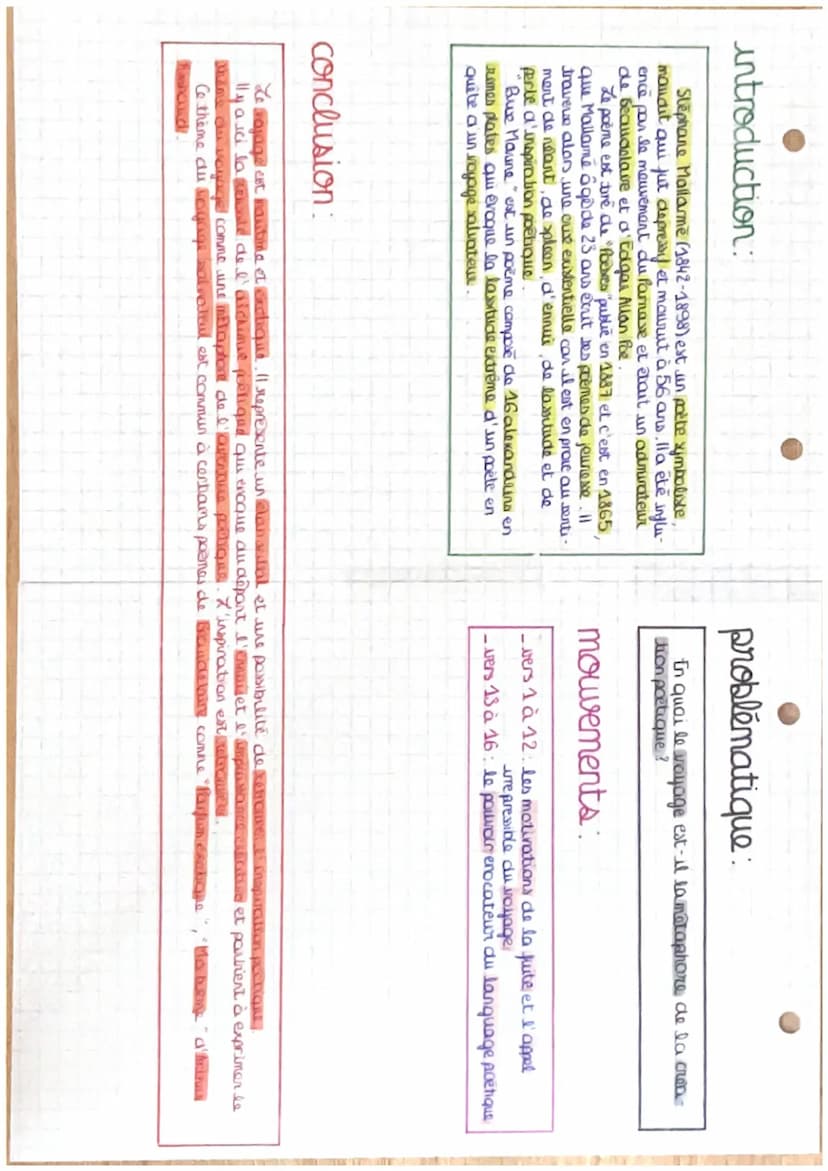 introduction :
Stéphane Mallarmé (1842-1898) est un poète symboliste,
maudit qui fut dépressif et mourut à 56 ans. Il a été influ-
encé par le mouvement du Parnasse et était un admirateur
de Beaudelaire et d'Edgar Allan Poe.
Le poème est tiré de "Poésies" publié en 1887 et c'est en 1865,
que Mallarmé âgé de 23 ans écrit ses poèmes de jeunesse. Il
traverse alors une crise existentielle car il est en proie au senti-
ment de néant, de spleen, d'ennui, de lassitude et de
perte d'inspiration poétique.
Brise Marine" est un poème composé de 16 alexandrins en
rimes plates qui évoque la lassitude extrême d'un poète en
quête d'un voyage salvateur.
problématique :
En quoi le voyage est-il la métaphore de la créa-
tion poétique ?
mouvements :
- vers 1 à 12 : les motivations de la fuite et l'appel
irrepressible du voyage
- vers 13 à 16 : le pouvoir evocateur du language poétique
conclusion :
Le voyage est maritime et exotique. Il represente un élan vital et une possibilité de retrouver l'inspiration poétique.
Il y a ici la réussite de l'alchimie poétique qui évoque au départ l'ennui et l'impuissance créative et parvient à exprimer le
thème du voyage comme une métaphore de l'aventure poétique. L'inspiration est retrouvée.
Ce thème du voyage salvateur est commun à certains poèmes de Beaudelaire comme "Parfum exotique", "Ma bohème" d'Arthur
Rimbaud.